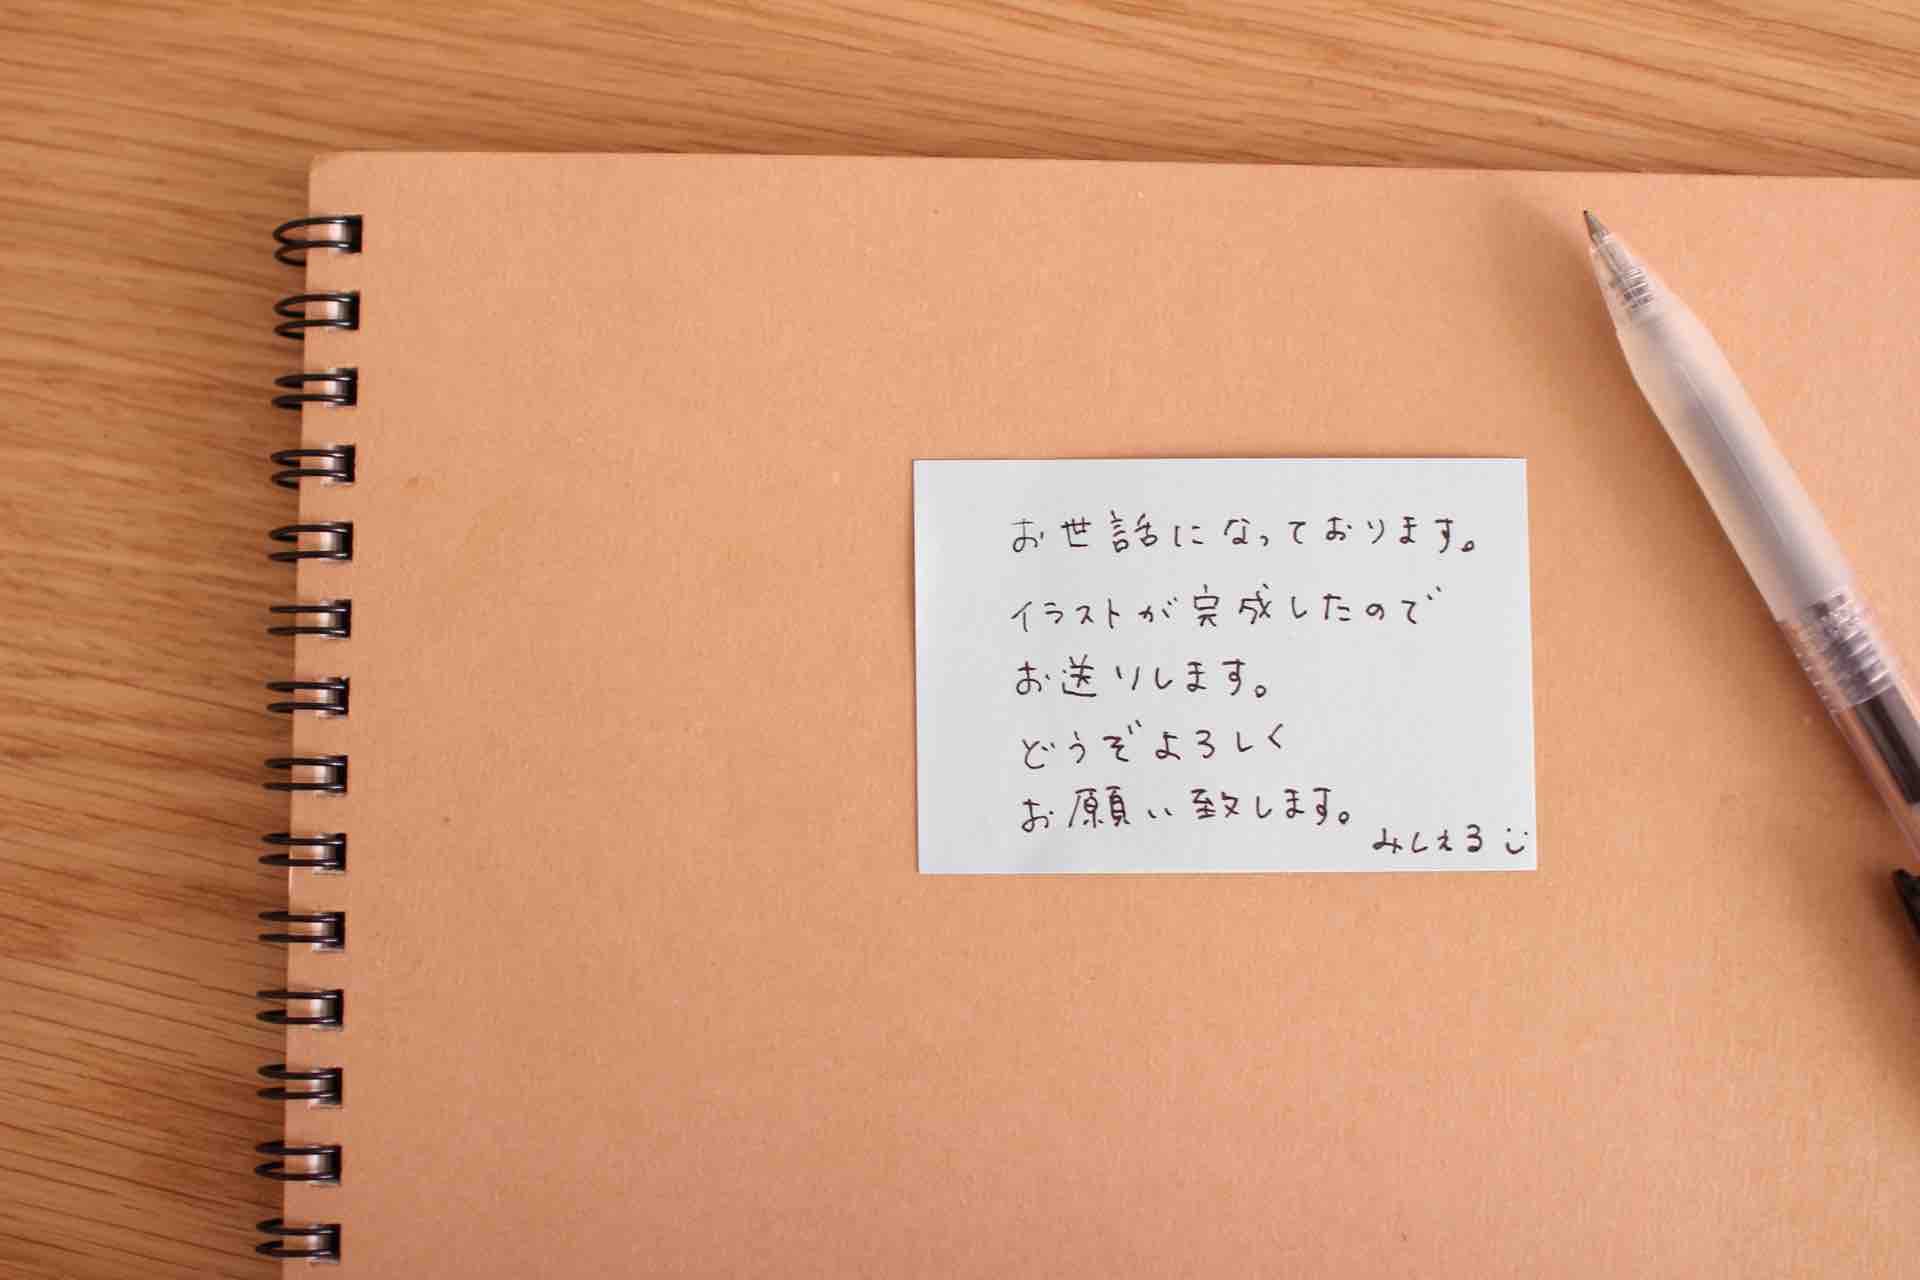 お世話になっております。
イラストが完成したので
お送りします。
どうぞよろしく
お願い致します。
みしぇる